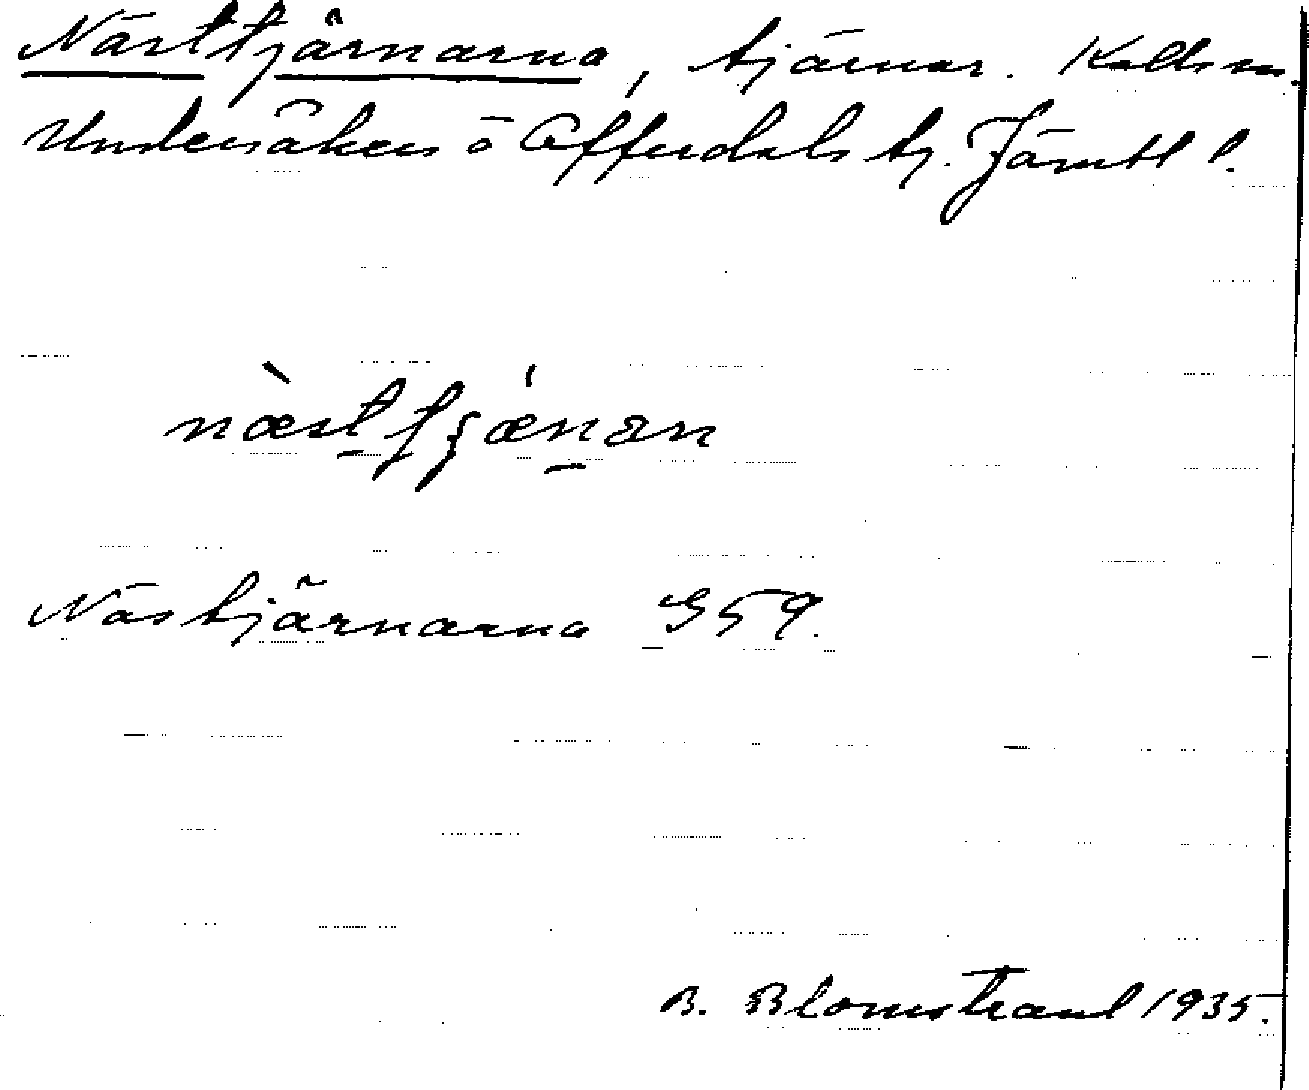 Nästtjärnarna, tjärnar. Kalls sn.
Undersåkers o Offerdals tg. Jämtl l.
næsttʃænan
Nästjärnarna G59.
B. Blomstrand 1935.